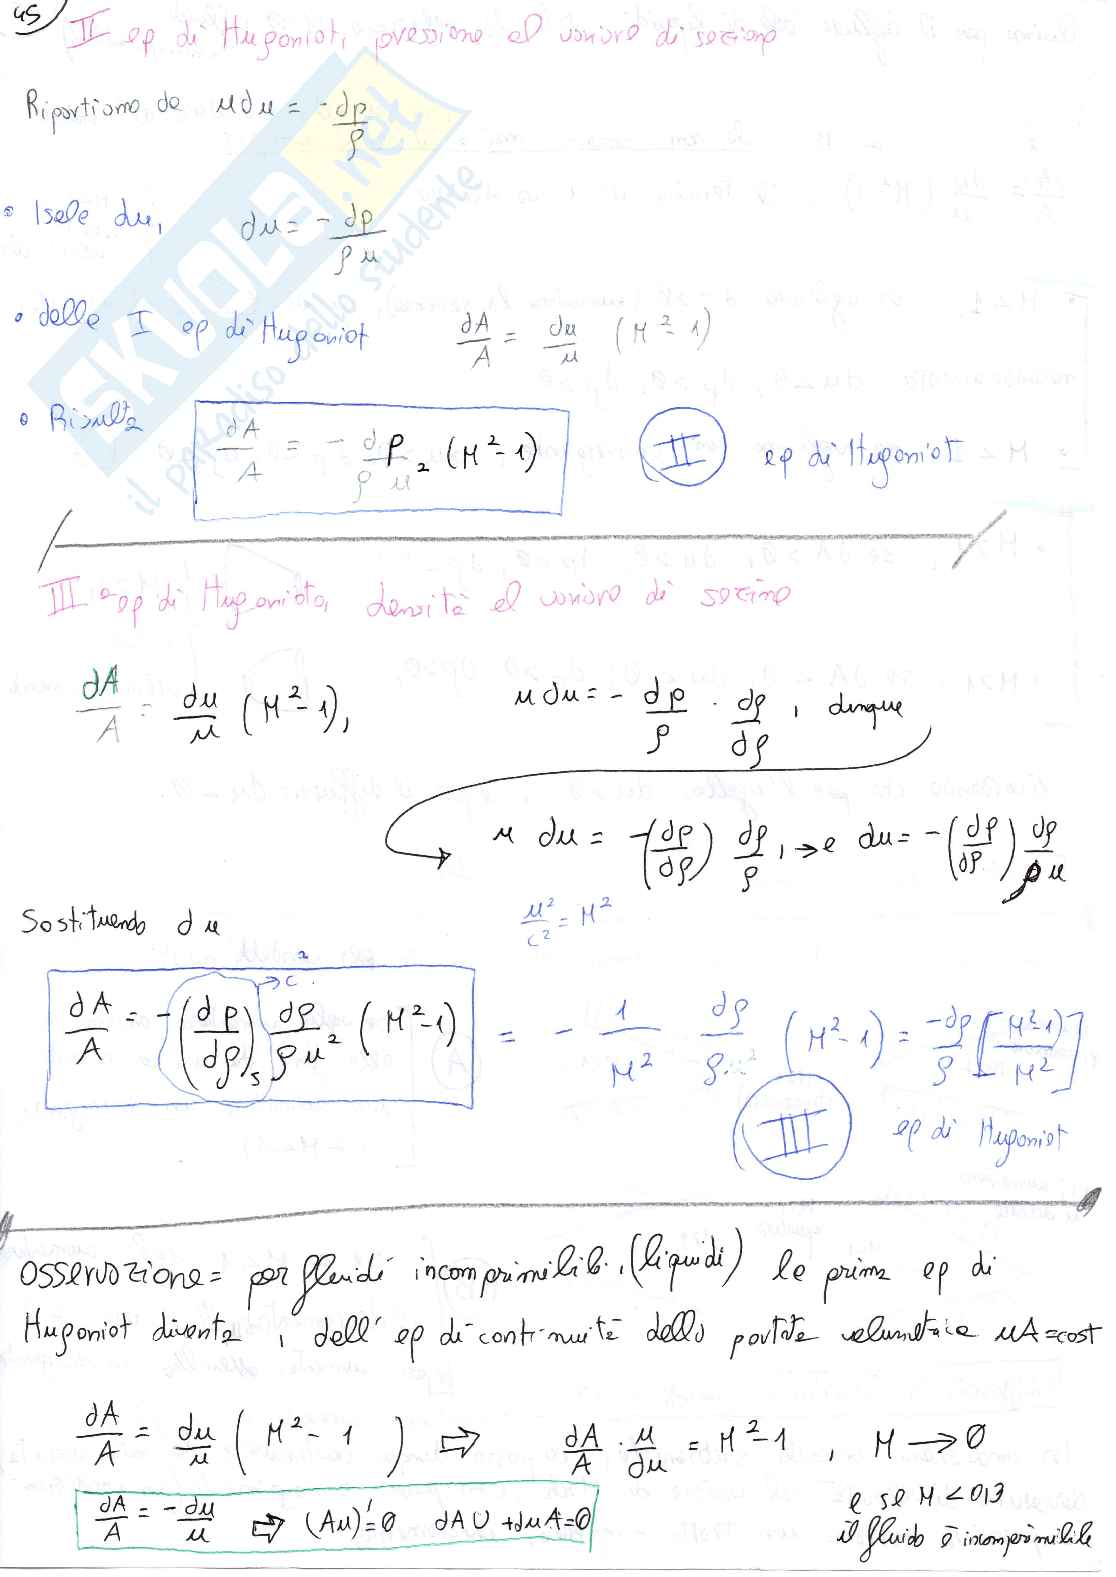 45
II eq di Hugoniot, pressione al variare di sezione
Ripartiamo da u du = - dp/ρ
• Isolo du, du = - dp/(ρ u)
• dalla I eq di Hugoniot dA/A = du/u (M²-1)
• Risulta dA/A = - dp/(ρ u²) (M²-1) II eq di Hugoniot
III eq di Hugoniot, densità al variare di sezione
dA/A = du/u (M²-1), u du = - dp/ρ · dρ/dρ, dunque
u du = -(dp/dρ) dρ/ρ, → e du = -(dp/dρ) dρ/(ρ u)
Sostituendo du u²/c² = M²
→ c²
dA/A = -(dp/dρ)s dρ/(ρ u²) (M²-1) = - 1/M² dρ/ρ (M²-1) = -dρ/ρ [(M²-1)/M²]
III eq di Hugoniot
Osservazione = per fluidi incomprimibili, (liquidi) la prima eq di
Hugoniot diventa, dall' eq di continuità della portata volumetrica uA=cost
dA/A = du/u (M² - 1) ⇒ dA/A · u/du = M²-1, M → 0
dA/A = - du/u ⇒ (Au)'=0 dA U + du A=0
e se M < 0,3
il fluido è incomprimibile
SKUOLA.net
il paradiso dello studente